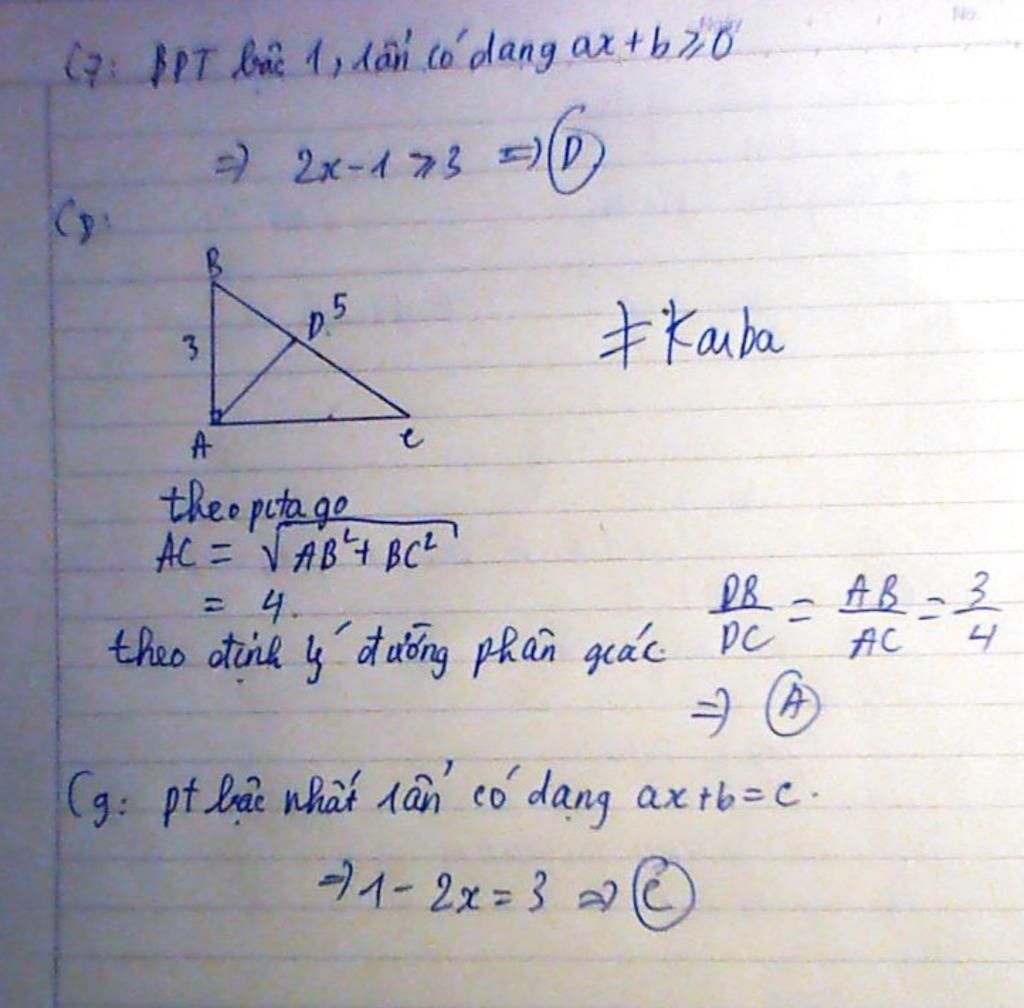 C7: BPT bậc 1, 1 ẩn có dạng ax + b ≥ 0
=> 2x - 1 ≥ 3 => D
C8:
B
3
D
5
A
C
≠ Kaiba
theo pitago
AC = √AB² + BC²
= 4.
theo định lý đường phân giác. DB/DC = AB/AC = 3/4
=> A
C9: pt bậc nhất 1 ẩn có dạng ax + b = c.
=> 1 - 2x = 3 => C